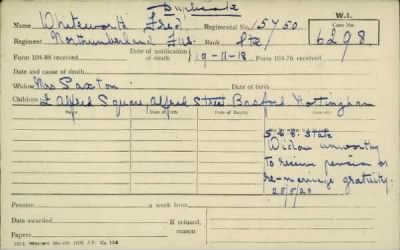 Duplicate
W.I.
Name Whiteworth Fred. Regimental No. 15450
Case No.
6298
Regiment Northumberland Fus. Rank Pte
Form 104-88 received Date of notification of death 19-11-18. Form 104-76 received
Date and cause of death
Widow Mrs Saxton Date of birth
Children 2 Alfred Square, Alfred Street, Basford Nottingham
S.G.C. State
Widow unworthy
to receive pension or
re-marriage gratuity.
25/5/20
Pension a week from
Date awarded If refused,
reason
Papers